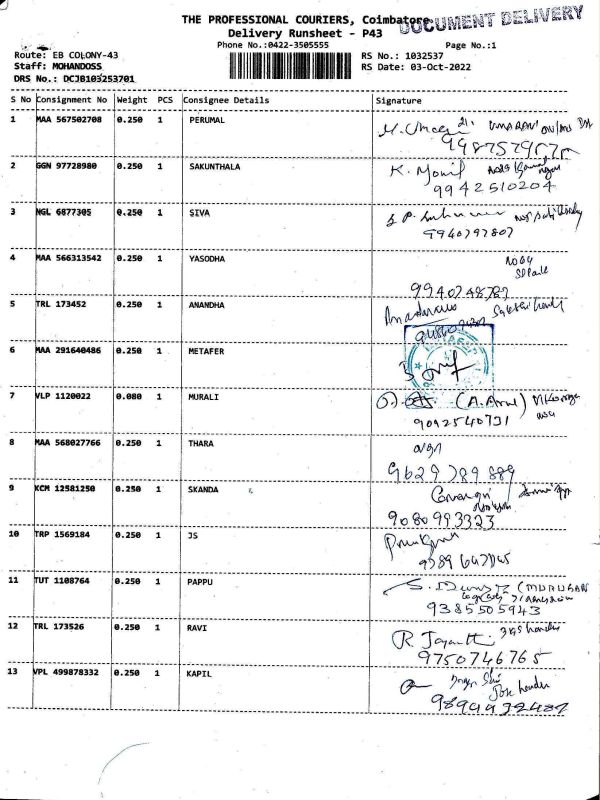 THE PROFESSIONAL COURIERS, Coimbatore
DOCUMENT DELIVERY
Delivery Runsheet - P43
Phone No.:0422-3505555 Page No.:1
Route: EB COLONY-43 RS No.: 1032537
Staff: MOHANDOSS RS Date: 03-Oct-2022
DRS No.: DCJB103253701
S No Consignment No Weight PCS Consignee Details Signature
1 MAA 567502708 0.250 1 PERUMAL
2 GGN 97728980 0.250 1 SAKUNTHALA K.
9942510204
3 NGL 6877305 0.250 1 SIVA
9940797807
4 MAA 566313542 0.250 1 YASODHA
9940748787
5 TRL 173452 0.250 1 ANANDHA
6 MAA 291640486 0.250 1 METAFER
7 VLP 1120022 0.080 1 MURALI
9092540731
8 MAA 568027766 0.250 1 THARA
9629789889
9 KCM 12581250 0.250 1 SKANDA
9080993323
10 TRP 1569184 0.250 1 JS
11 TUT 1108764 0.250 1 PAPPU S. (MURUGAN
9385505943
12 TRL 173526 0.250 1 RAVI R. Jayanthi
9750746765
13 VPL 499878332 0.250 1 KAPIL